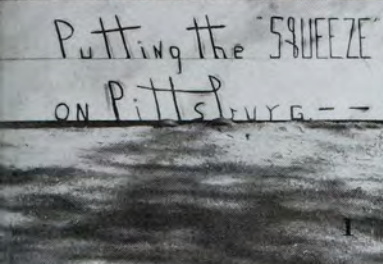 Putting the "SQUEEZE"
ON PittsburG. --
I